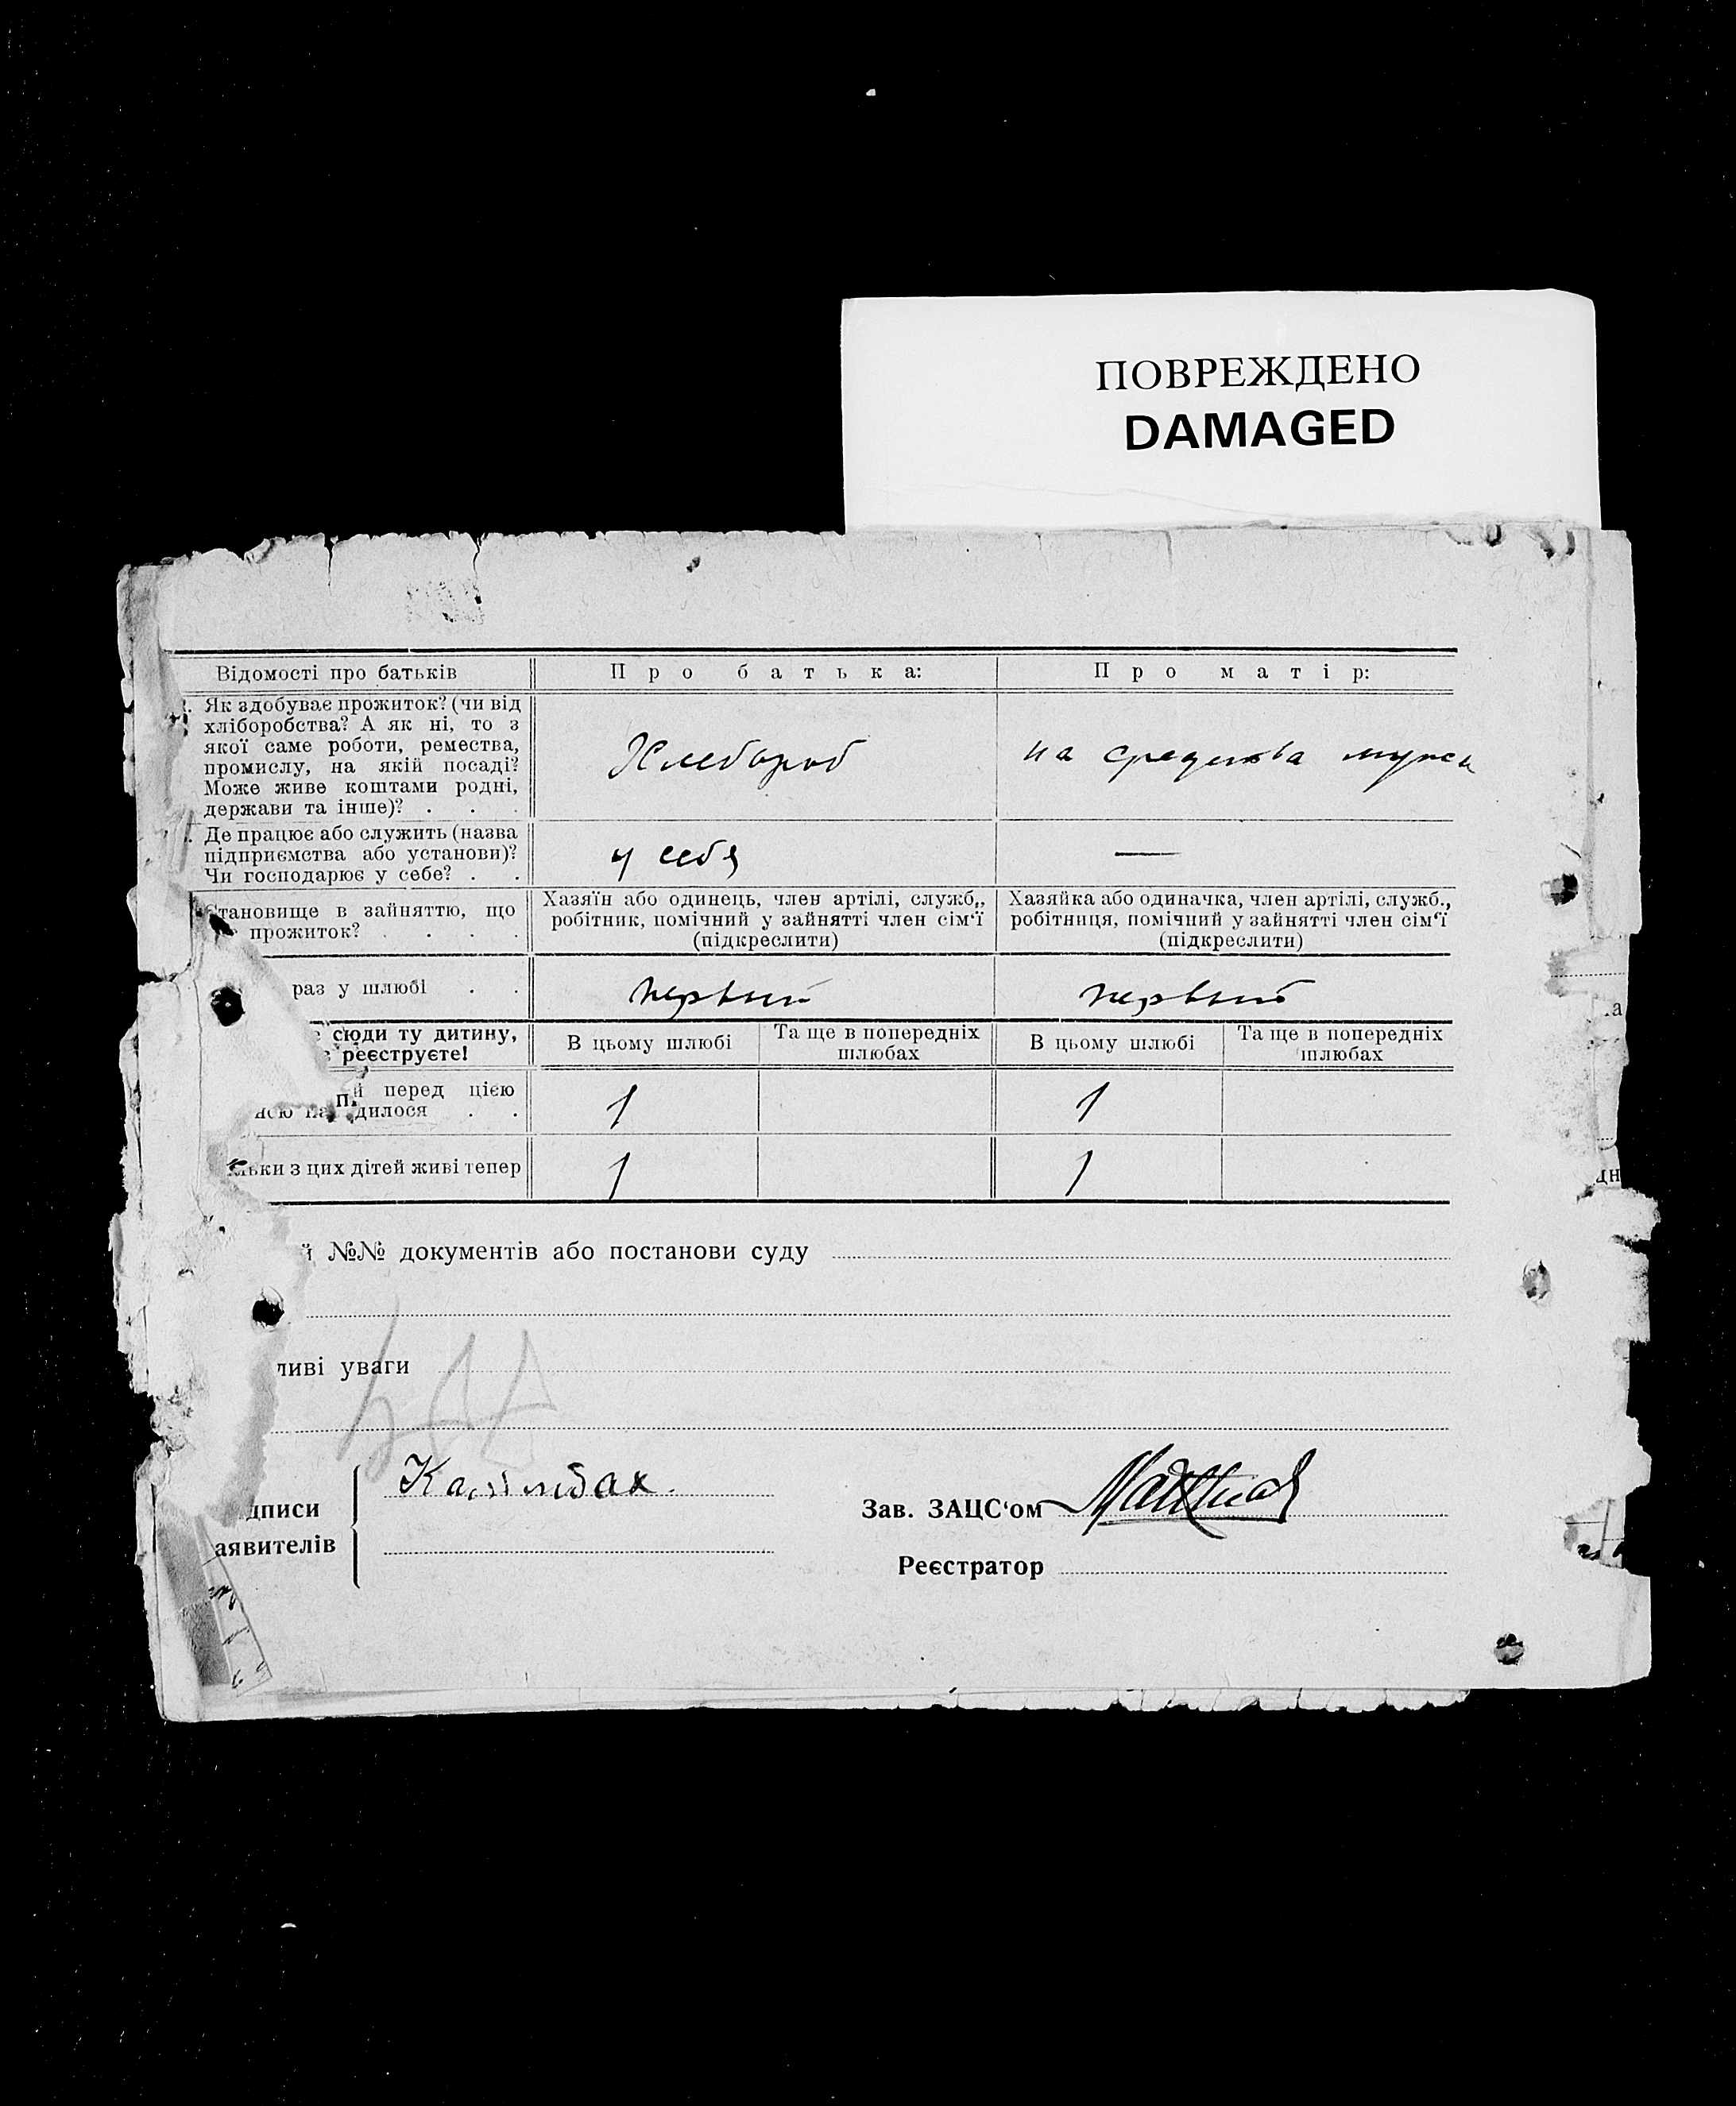 ПОВРЕЖДЕНО
DAMAGED
Відомості про батьків
Про батька:
Про матір:
Як здобуває прожиток? (чи від
хліборобства? А як ні, то з
якої саме роботи, ремества,
промислу, на якій посаді?
Може живе коштами родні,
держави та інше)? . . .
Хлебороб
на средства мужа
Де працює або служить (назва
підприємства або установи)?
Чи господарює у себе? . .
у себя
—
Становище в зайняттю, що
прожиток? . . . .
Хазяїн або одинець, член артілі, служб.,
робітник, помічний у зайнятті член сім‘ї
(підкреслити)
Хазяйка або одиначка, член артілі, служб.,
робітниця, помічний у зайнятті член сім‘ї
(підкреслити)
раз у шлюбі . .
первый
первый
сюди ту дитину,
реєструєте!
В цьому шлюбі
Та ще в попередніх
шлюбах
В цьому шлюбі
Та ще в попередніх
шлюбах
й перед цією
дилося . .
1
1
льки з цих дітей живі тепер
1
1
й №№ документів або постанови суду
ливі уваги
дписи
аявителів
Зав. ЗАЦС‘ом
Реєстратор